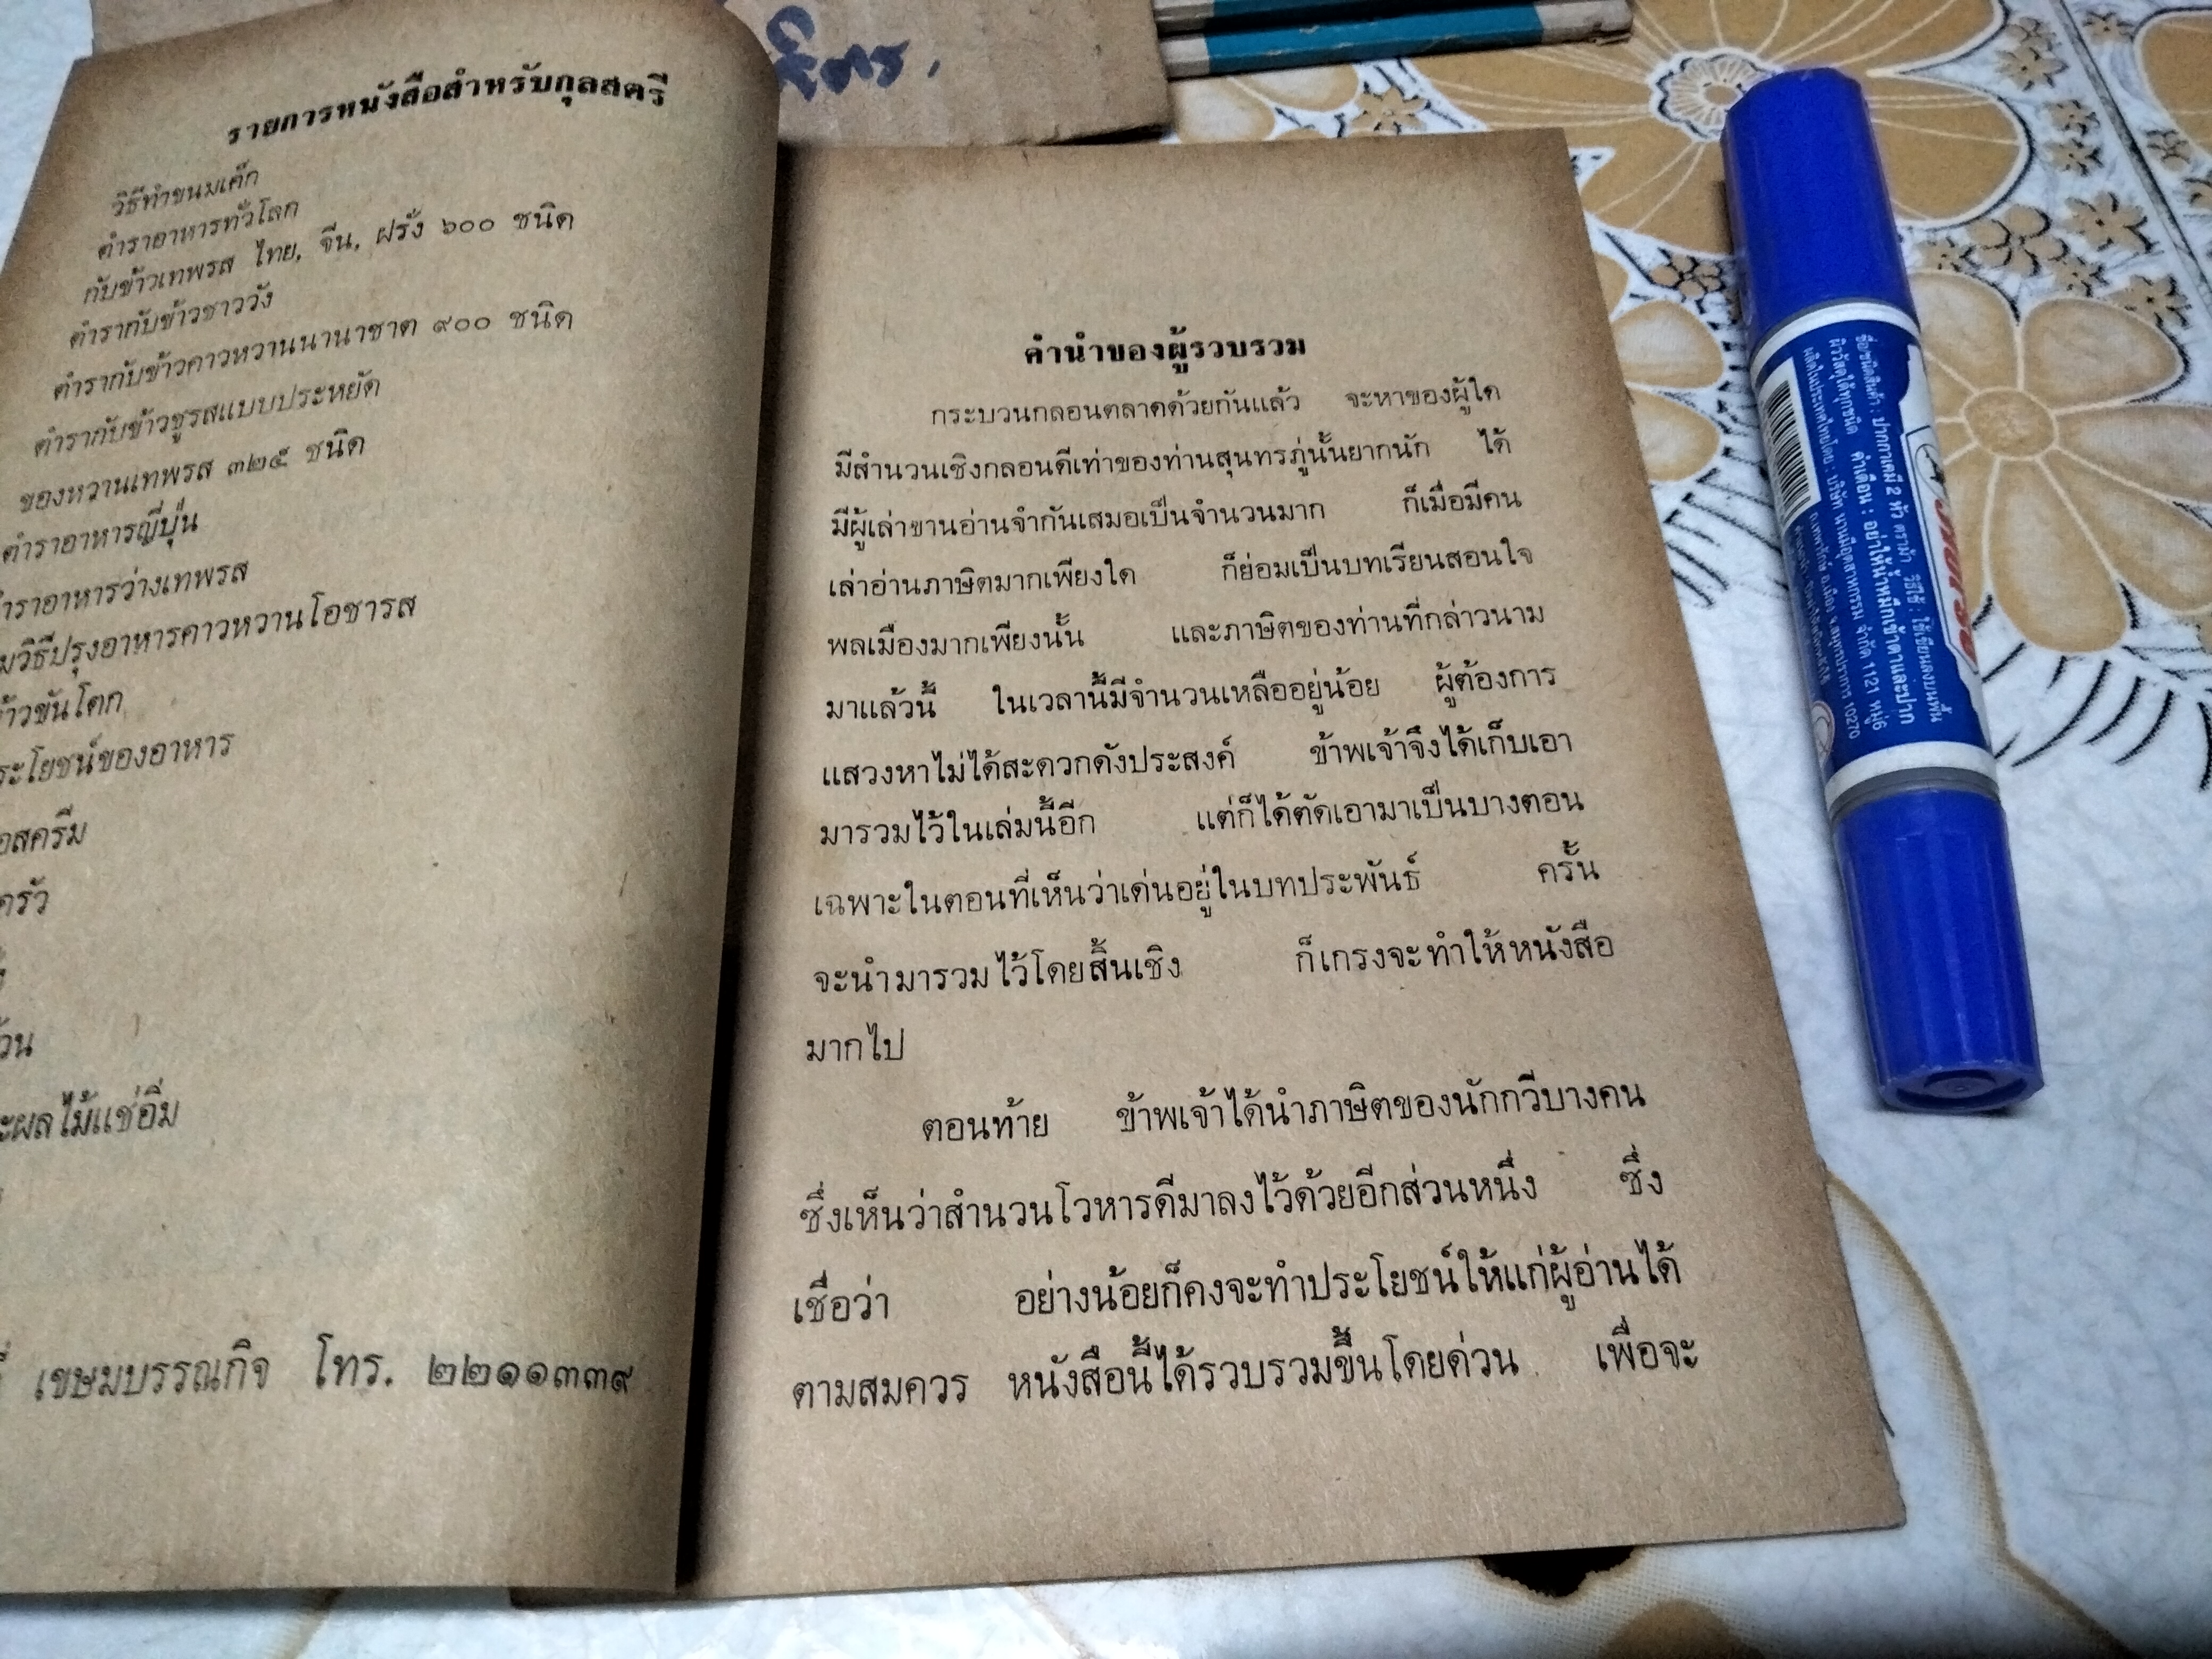 รายการหนังสือสำหรับกุลสตรี
วิธีทำขนมเค็ก
ตำราอาหารทั่วโลก
กับข้าวเทพรส ไทย, จีน, ฝรั่ง ๖๐๐ ชนิด
ตำรากับข้าวชาววัง
ตำรากับข้าวคาวหวานนานาชาต ๙๐๐ ชนิด
ตำรากับข้าวชูรสแบบประหยัด
ของหวานเทพรส ๓๒๕ ชนิด
ตำราอาหารญี่ปุ่น
ำราอาหารว่างเทพรส
มวิธีปรุงอาหารคาวหวานโอชารส
ข้าวขันโตก
ระโยชน์ของอาหาร
อสครีม
ครัว
้วน
ะผลไม้แช่อิ่ม
เขษมบรรณกิจ โทร. ๒๒๑๑๓๓๙
คำนำของผู้รวบรวม
กระบวนกลอนตลาดด้วยกันแล้ว จะหาของผู้ใด
มีสำนวนเชิงกลอนดีเท่าของท่านสุนทรภู่นั้นยากนัก ได้
มีผู้เล่าขานอ่านจำกันเสมอเป็นจำนวนมาก ก็เมื่อมีคน
เล่าอ่านภาษิตมากเพียงใด ก็ย่อมเป็นบทเรียนสอนใจ
พลเมืองมากเพียงนั้น และภาษิตของท่านที่กล่าวนาม
มาแล้วนี้ ในเวลานี้มีจำนวนเหลืออยู่น้อย ผู้ต้องการ
แสวงหาไม่ได้สะดวกดังประสงค์ ข้าพเจ้าจึงได้เก็บเอา
มารวมไว้ในเล่มนี้อีก แต่ก็ได้ตัดเอามาเป็นบางตอน
เฉพาะในตอนที่เห็นว่าเด่นอยู่ในบทประพันธ์ ครั้น
จะนำมารวมไว้โดยสิ้นเชิง ก็เกรงจะทำให้หนังสือ
มากไป
ตอนท้าย ข้าพเจ้าได้นำภาษิตของนักกวีบางคน
ซึ่งเห็นว่าสำนวนโวหารดีมาลงไว้ด้วยอีกส่วนหนึ่ง ซึ่ง
เชื่อว่า อย่างน้อยก็คงจะทำประโยชน์ให้แก่ผู้อ่านได้
ตามสมควร หนังสือนี้ได้รวบรวมขึ้นโดยด่วน เพื่อจะ
HORSE
ชื่อ/ชนิดสินค้า : ปากกาเคมี 2 หัว ตราม้า วิธีใช้ : ใช้เขียนลงบนพื้น
ผิววัสดุได้ทุกชนิด คำเตือน : อย่าให้น้ำหมึกเข้าตาและปาก
ผลิตในประเทศไทยโดย : บริษัท นานมีอุตสาหกรรม จำกัด 1121 หมู่6
ถ.เทพารักษ์ อ.เมือง จ.สมุทรปราการ 10270